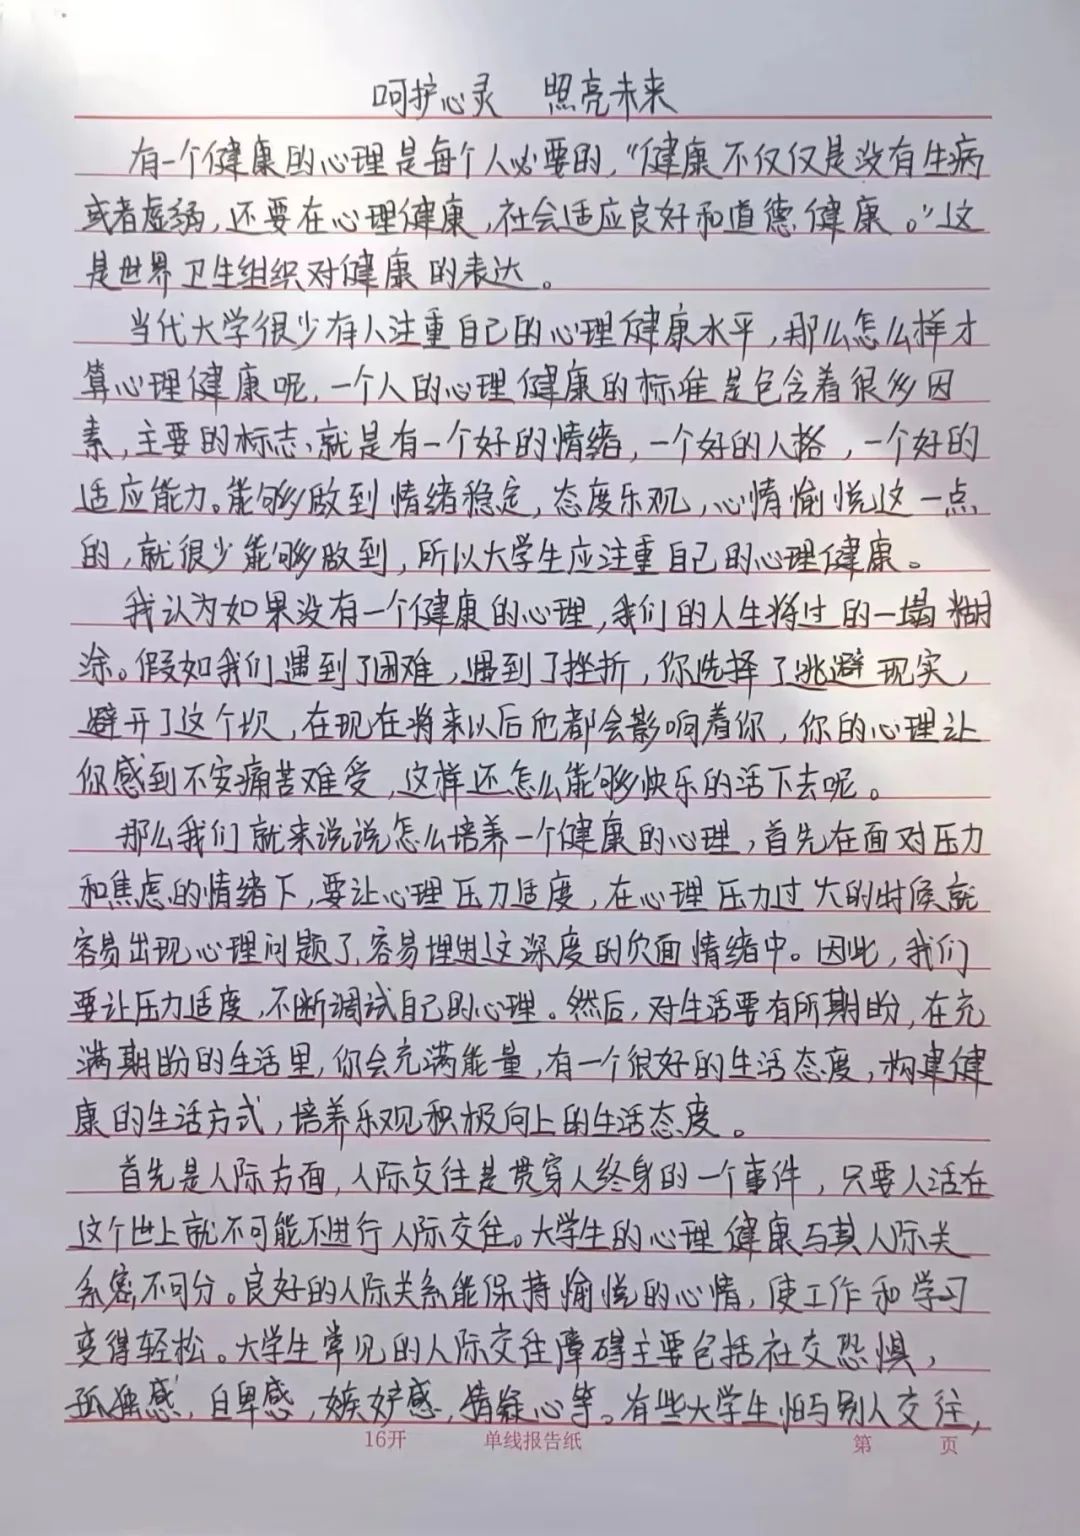 呵护心灵 照亮未来
有一个健康的心理是每个人必要的，“健康不仅仅是没有生病
或者虚弱，还要在心理健康，社会适应良好和道德健康。”这
是世界卫生组织对健康的表达。
当代大学很少有人注重自己的心理健康水平，那么怎么样才
算心理健康呢，一个人的心理健康的标准是包含着很多因
素，主要的标志，就是有一个好的情绪，一个好的人格，一个好的
适应能力。能够做到情绪稳定，态度乐观，心情愉悦这一点
的，就很少能够做到，所以大学生应注重自己的心理健康。
我认为如果没有一个健康的心理，我们的人生将过的一塌糊
涂。假如我们遇到了困难，遇到了挫折，你选择了逃避现实，
避开了这个坎，在现在将来以后他都会影响着你，你的心理让
你感到不安痛苦难受，这样还怎么能够快乐的活下去呢。
那么我们就来说说怎么培养一个健康的心理，首先在面对压力
和焦虑的情绪下，要让心理压力适度，在心理压力过大的时候就
容易出现心理问题了，容易埋进这深度的负面情绪中。因此，我们
要让压力适度，不断调试自己的心理。然后，对生活要有所期盼，在充
满期盼的生活里，你会充满能量，有一个很好的生活态度，构建健
康的生活方式，培养乐观积极向上的生活态度。
首先是人际方面，人际交往是贯穿人终身的一个事件，只要人活在
这个世上就不可能不进行人际交往。大学生的心理健康与其人际关
系密不可分。良好的人际关系能保持愉悦的心情，使工作和学习
变得轻松。大学生常见的人际交往障碍主要包括社交恐惧，
孤独感，自卑感，嫉妒感，猜疑心等。有些大学生怕与别人交往，
16开 单线报告纸 第 页